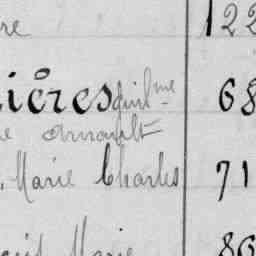 re 122
ières Guil^me 68
e Arnault
. Marie Charles 71
ouis Marie 86